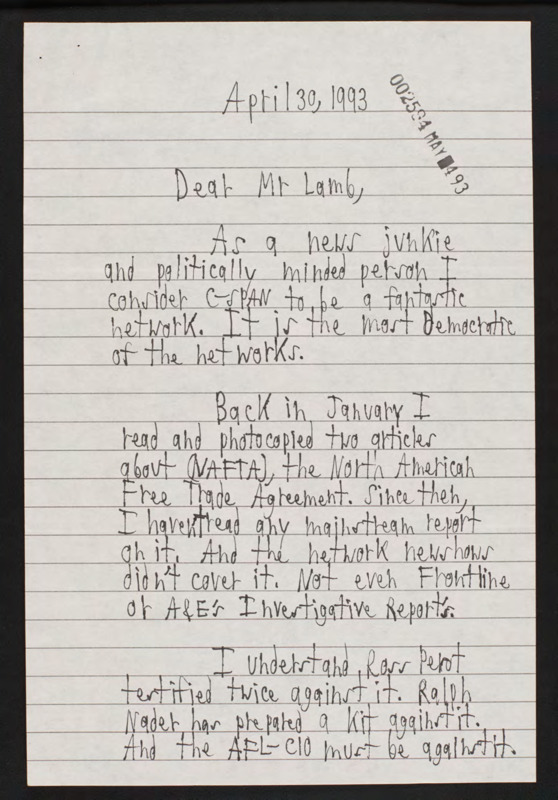 April 30, 1993
002594 MAY 493
Dear Mr Lamb,
As a news junkie
and politically minded person I
consider C-SPAN to be a fantastic
network. It is the most Democratic
of the networks.
Back in January I
read and photocopied two articles
about (NAFTA), the North American
Free Trade Agreement. Since then,
I haven't read any mainstream report
on it. And the network newshows
didn't cover it. Not even Frontline
or A&E's Investigative Reports.
I understand Ross Perot
testified twice against it. Ralph
Nader has prepared a kit against it.
And the AFL-CIO must be against it.